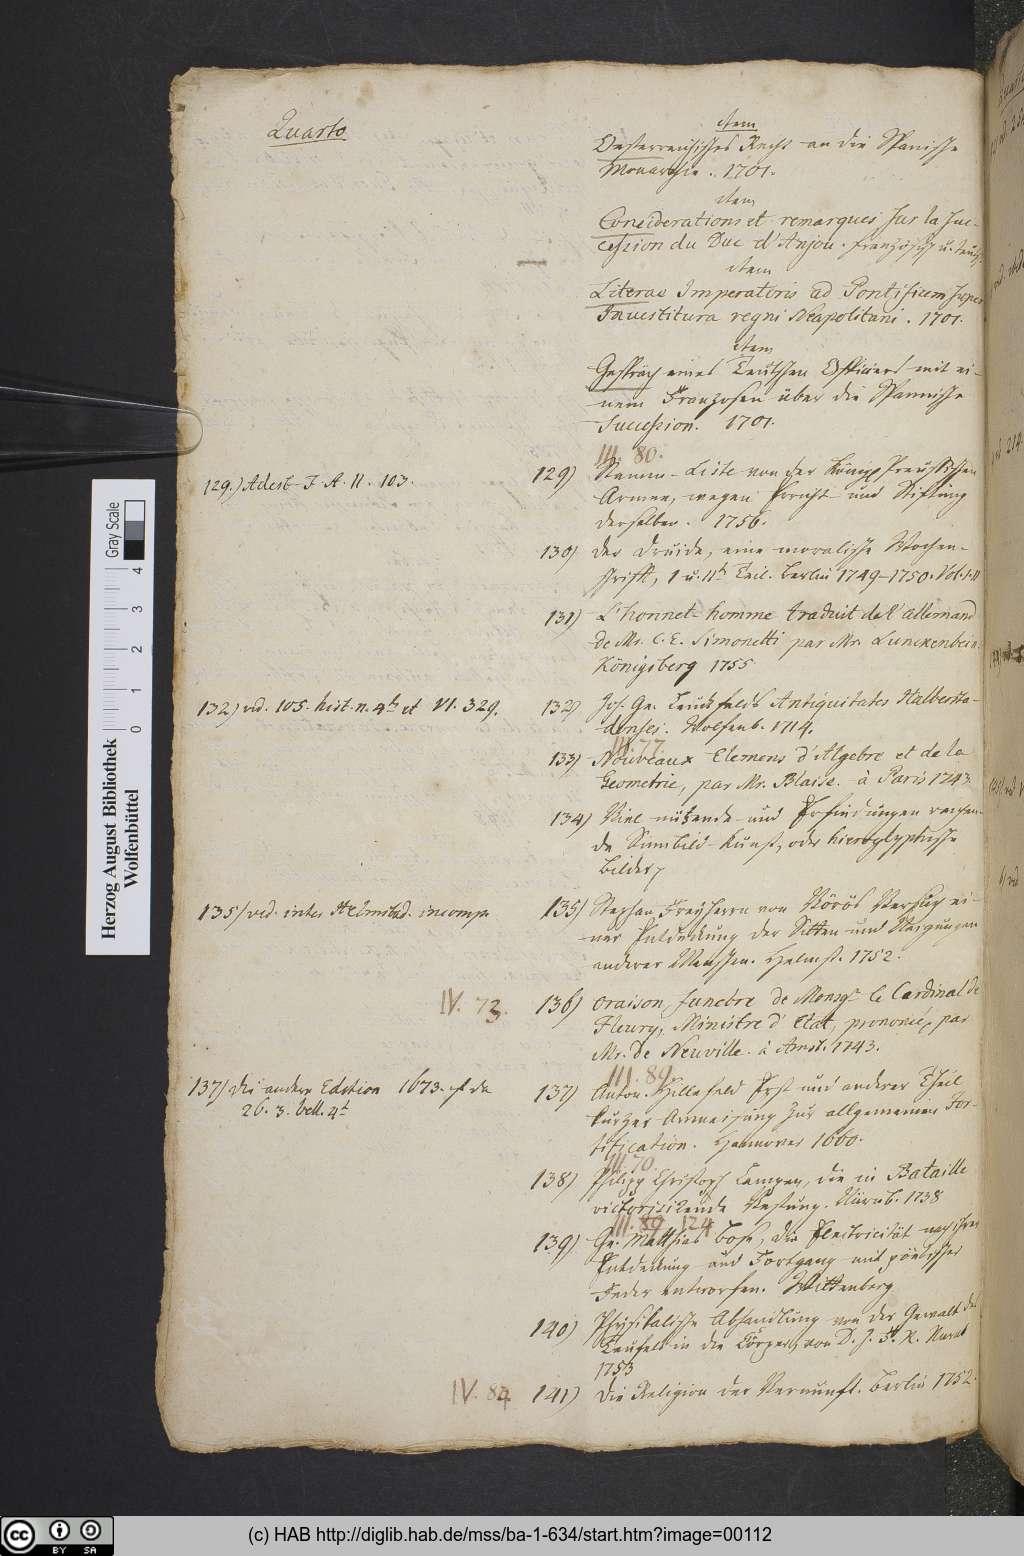 Quarto
item
Oesterreichisches Recht an die Spanische
Monarchie. 1701.
item
Considerations et remarques sur la suc-
cession du Duc d'Anjou. französisch u. teutsch.
item
Literae Imperatoris ad Pontificem super
Investitura regni Neapolitani. 1701.
item
Gespräch eines Teutschen Officiers mit ei-
nem Franzosen über die Spannische
Succession. 1701.
III. 80.
129.) Adest T. A. II. 103.
129) Stamm-Liste von der Königl. Preussischen
Armee, wegen und Stiftung
derselben. 1756.
130) Der Druide, eine moralische Wochen-
schrifft, 1 u. IIt. Teil. Berlin 1749-1750. Vol. I. II
131) L'honnet-homme traduit de l'Allemand
de Mr. C. E. Simonetti par Mr. Lunckenbein.
Königsberg 1755
132) vid. 105. hist. n. 4to et VI. 329.
132) Jo. Ge. Leuckfelds Antiquitates Halbersta-
denses. Wolfenb. 1714.
III. 77.
133) Nouveaux Elemens d'Algebre et de la
Geometrie, par Mr. Blaise. à Paris 1743.
134) Viel nützende und Erfindungen reichen-
de Sinnbild-Kunst, oder hieroglyphische
Bilder,
135) vid. inter Helmstad. incomp.
135) Stephan Freyherrn von Vöröß Versuch ei-
ner Entdeckung der Sitten und Neigungen
anderer Menschen. Helmst. 1752.
IV. 73.
136) Oraison funebre de Monsgr. le Cardinal de
Fleury, Ministre d'Etat, prononcé, par
Mr. De Neuville. à Amst. 1743.
III. 89
137) die andere Edition 1673. est in
26. 3. bell. 4t
137) Anton. Hillefeld Erst und anderer Theil
kurzer Anweisung zur allgemeinen For-
tification. Hannover 1660.
III. 70.
138) Philipp Christoph Lampen, die in Bataille
victorisirende Vestung. Nürnb. 1738
III. 89. 124
139) Ge. Matthias Bose, die Electricität nach ihrer
Entdeckung und Fortgang mit poetischer
Feder entworfen. Wittenberg
140) Physikalische Abhandlung von der Gewalt des
Teufels in die Körper, von D. J. St. K.
1753
IV. 84
141) Die Religion der Vernunft. Berlin 1752.
Herzog August Bibliothek
Wolfenbüttel
cm 0 1 2 3 4
Gray Scale
cc BY SA
(c) HAB http://diglib.hab.de/mss/ba-1-634/start.htm?image=00112